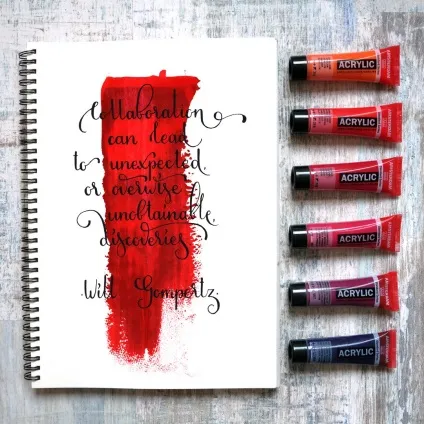 Collaboration
can lead
to unexpected
or overwise
unobtainable
discoveries
Will Gompertz
ACRYLIC
ACRYLIC
ACRYLIC
ACRYLIC
ACRYLIC
ACRYLIC